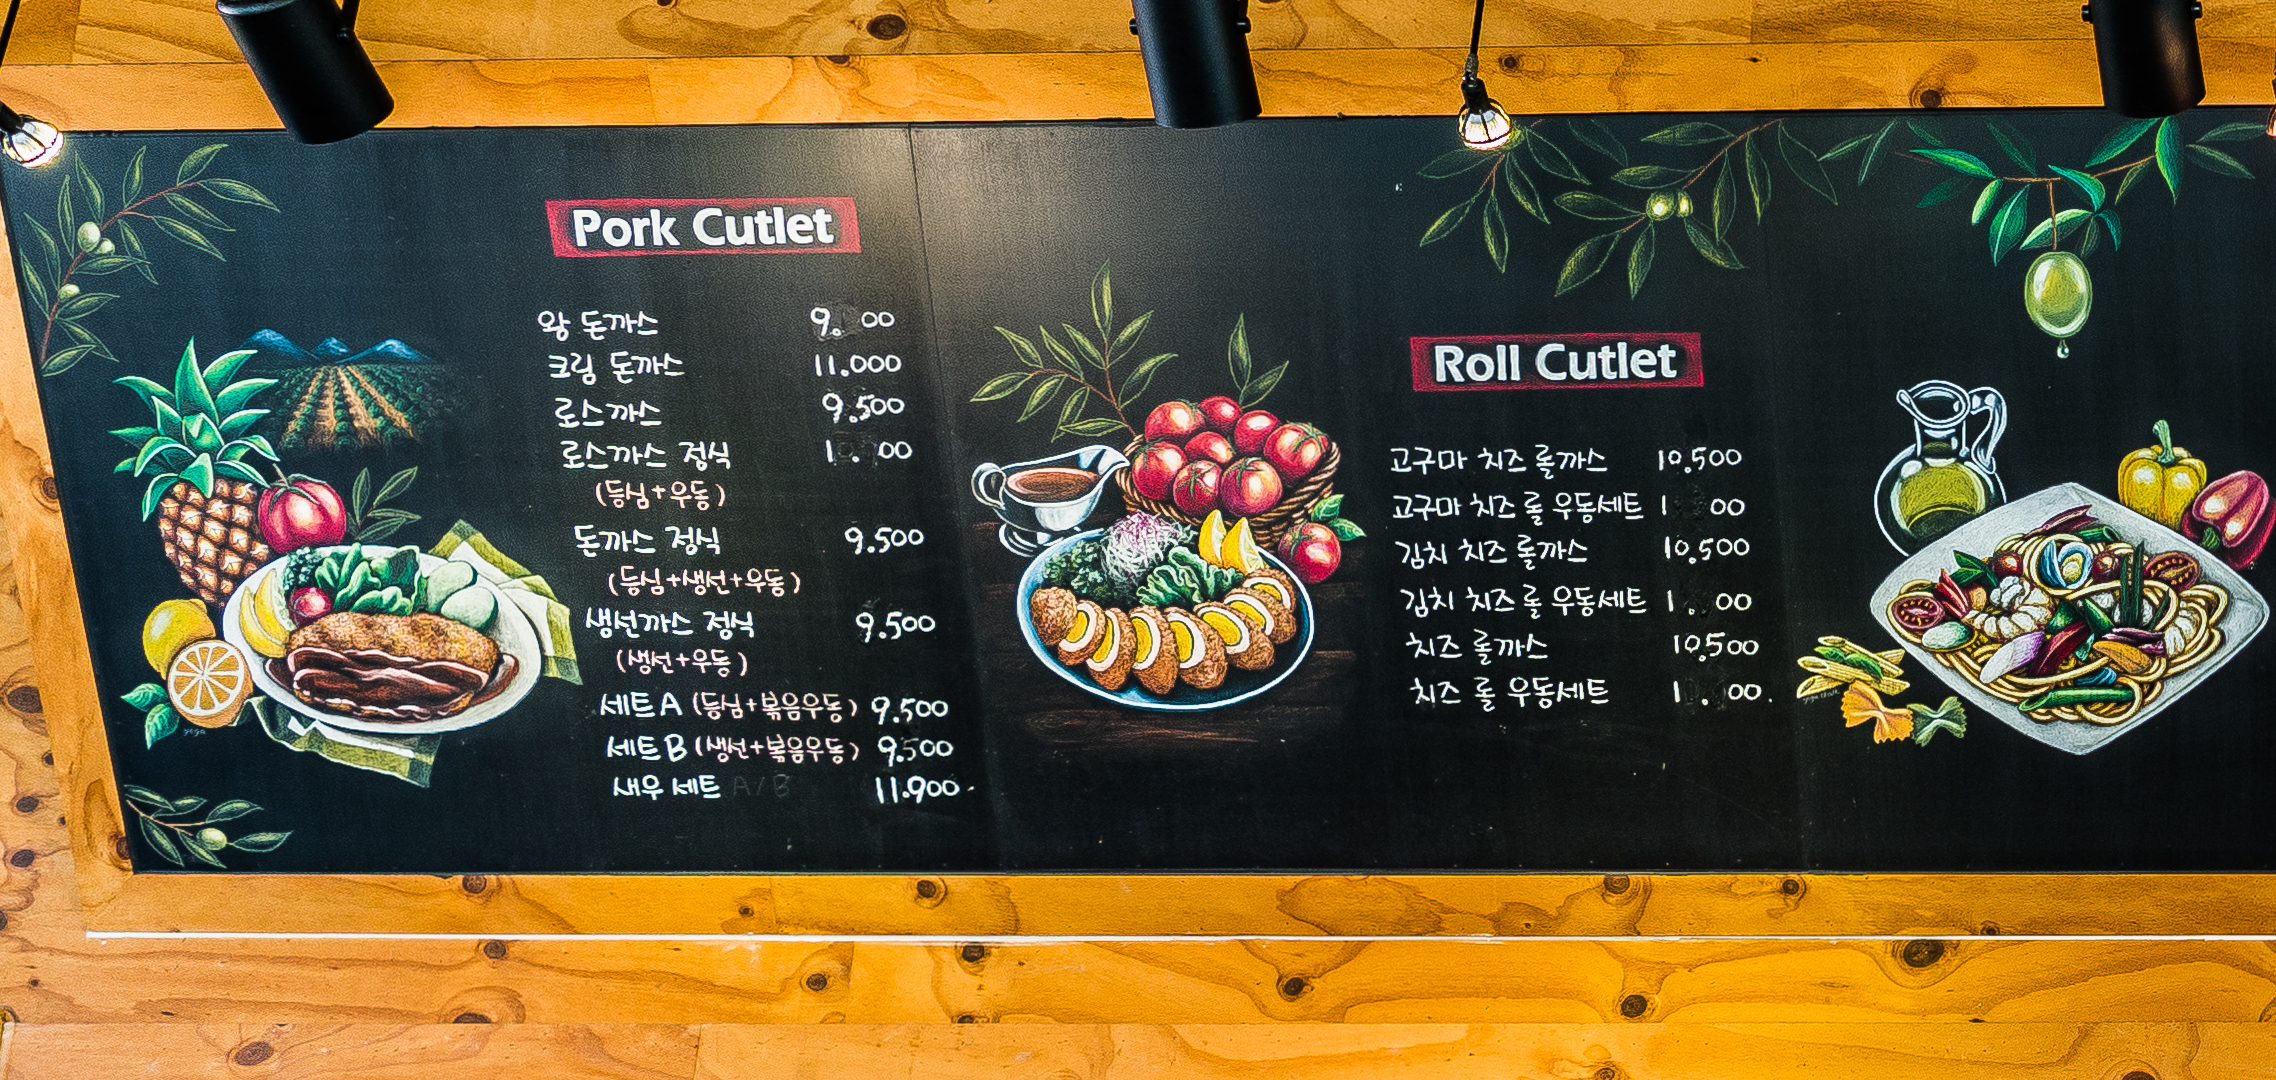 Pork Cutlet
왕 돈까스
크림 돈까스 11.000
로스까스 9.500
로스까스 정식
(등심+우동)
돈까스 정식 9.500
(등심+생선+우동)
생선까스 정식 9.500
(생선+우동)
세트A (등심+볶음우동) 9.500
세트B (생선+볶음우동) 9.500
새우 세트 A/B 11.900
Roll Cutlet
고구마 치즈 롤까스 10.500
고구마 치즈 롤 우동세트
김치 치즈 롤까스 10.500
김치 치즈 롤 우동세트
치즈 롤까스 10.500
치즈 롤 우동세트